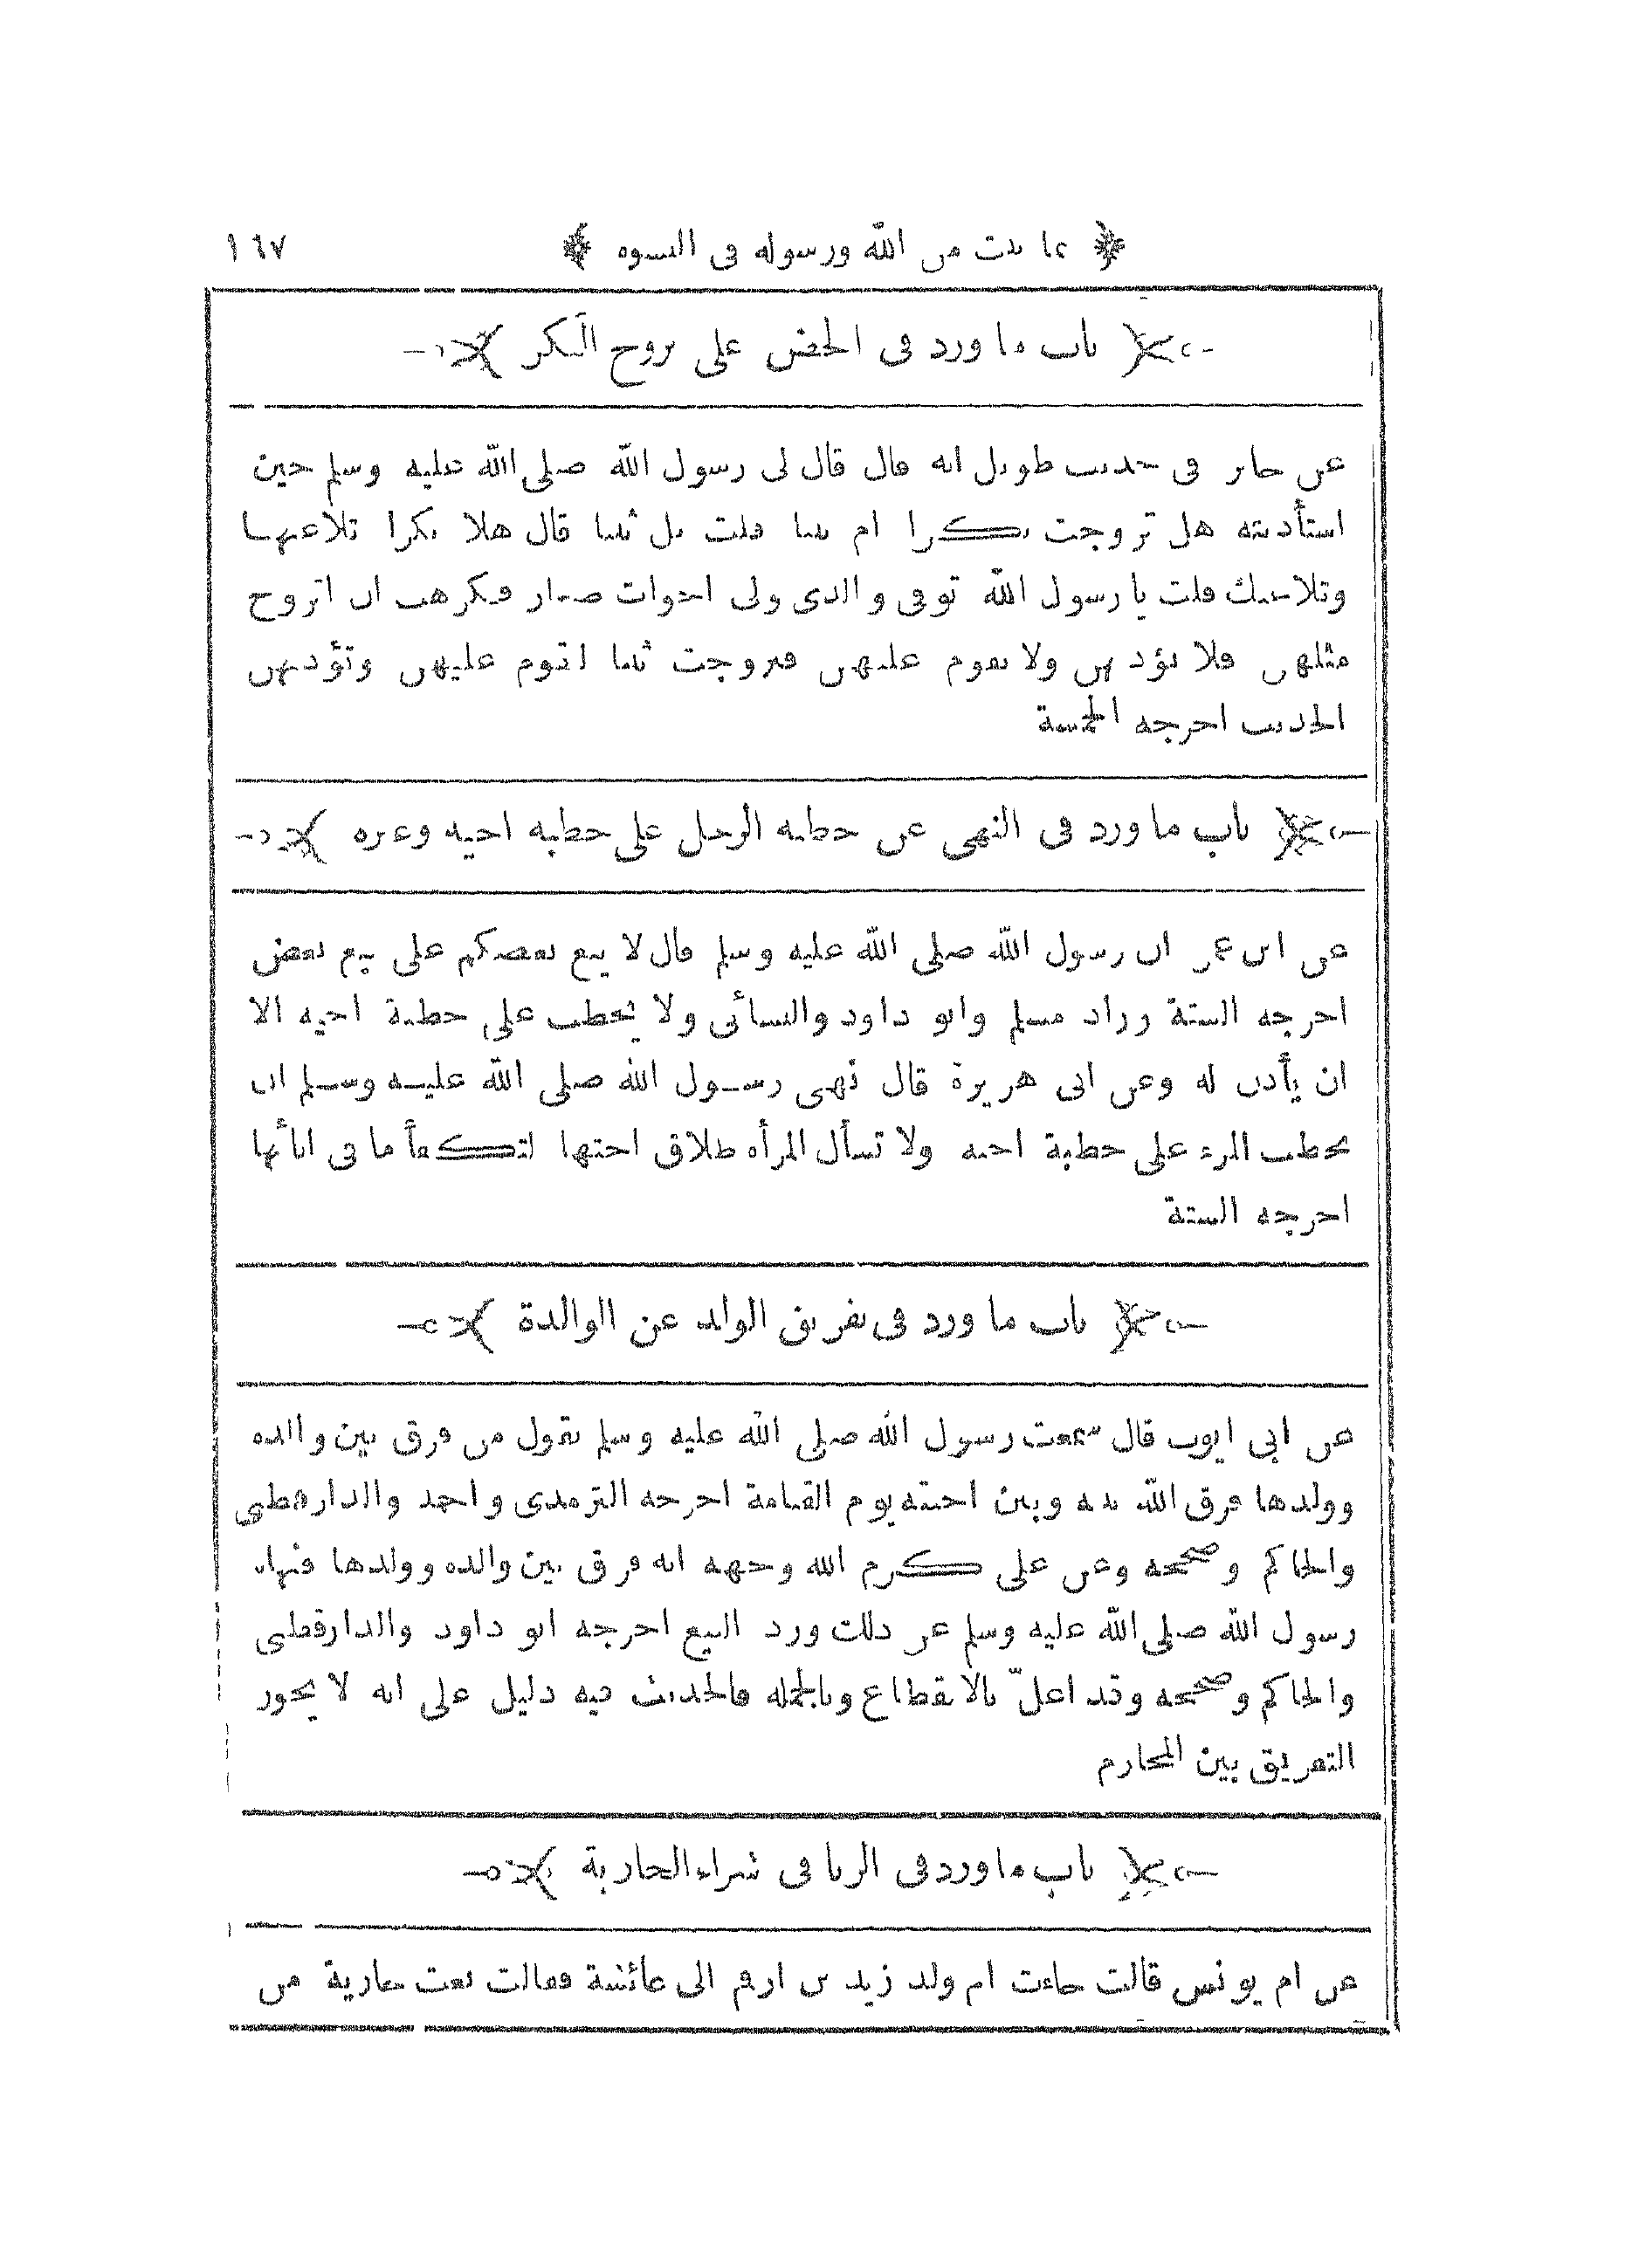 ما ثبت من الله ورسوله فى النسوه ١٦٧
باب ما ورد فى الحض على تزوج البكر
عن جابر فى حديث طويل انه قال قال لى رسول الله صلى الله عليه وسلم حين
استأذنته هل تزوجت بكرا ام ثيبا قلت بل ثيبا قال هلا بكرا تلاعبها
وتلاعبك قلت يا رسول الله توفى والدى ولى اخوات صغار فكرهت ان اتزوج
مثلهن فلا تؤدبهن ولا تقوم عليهن فتزوجت ثيبا لتقوم عليهن وتؤدبهن
الحديث اخرجه الخمسة
باب ما ورد فى النهى عن خطبة الرجل على خطبة اخيه وغيره
عن ابن عمر ان رسول الله صلى الله عليه وسلم قال لا يبع بعضكم على بيع بعض
اخرجه الستة وزاد مسلم وابو داود والنسائى ولا يخطب على خطبة اخيه الا
ان يأذن له وعن ابى هريرة قال نهى رسول الله صلى الله عليه وسلم ان
يخطب المرء على خطبة اخيه ولا تسأل المرأه طلاق اختها لتكفأ ما فى انائها
اخرجه الستة
باب ما ورد فى تفريق الولد عن الوالدة
عن ابى ايوب قال سمعت رسول الله صلى الله عليه وسلم يقول من فرق بين والده
وولدها فرق الله بينه وبين احبته يوم القيامة اخرجه الترمذى واحمد والدارقطنى
والحاكم وصححه وعن على كرم الله وجهه انه فرق بين والده وولدها فنهاه
رسول الله صلى الله عليه وسلم عن ذلك ورد البيع اخرجه ابو داود والدارقطنى
والحاكم وصححه وقد اعلّ بالانقطاع وبالجمله فالحديث فيه دليل على انه لا يجوز
التفريق بين المحارم
باب ما ورد فى الربا فى شراء الجارية
عن ام يونس قالت جاءت ام ولد زيد بن ارقم الى عائشة فقالت بعت جارية من